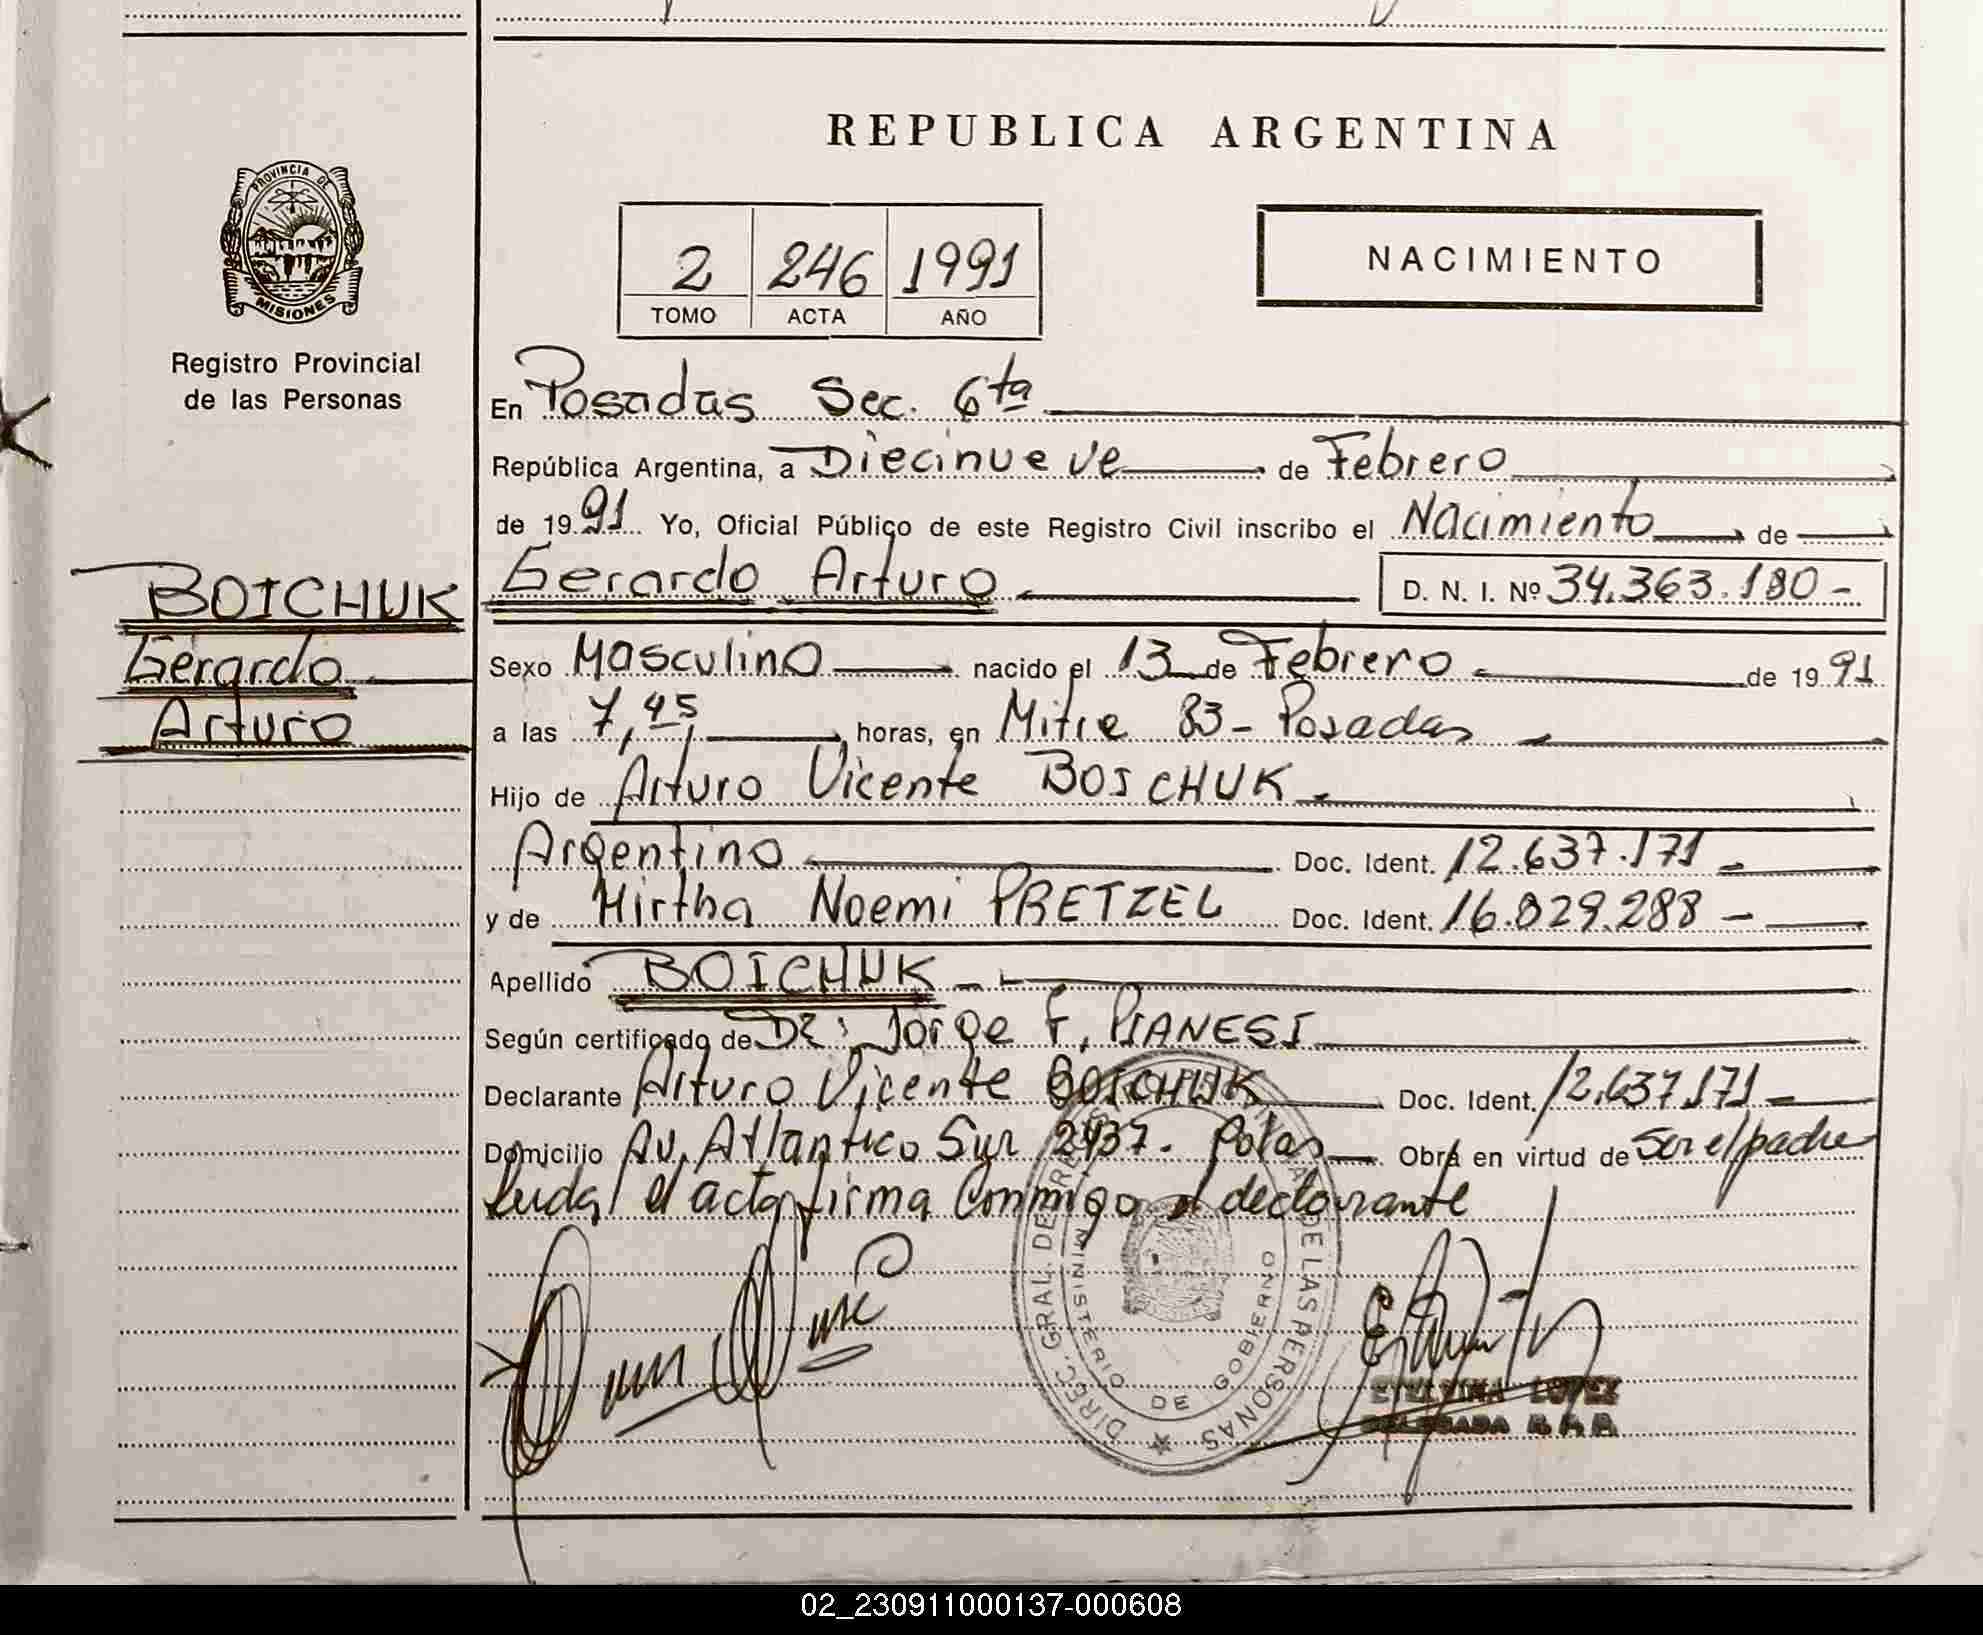 REPUBLICA ARGENTINA
PROVINCIA DE
MISIONES
Registro Provincial
de las Personas
2 246 1991
TOMO ACTA AÑO
NACIMIENTO
BOICHUK
Gerardo
Arturo
En Posadas Sec. 6ta
República Argentina, a Diecinueve de Febrero
de 1991 Yo, Oficial Público de este Registro Civil inscribo el Nacimiento de
Gerardo Arturo D. N. I. Nº 34.363.180 -
Sexo Masculino nacido el 13 de Febrero de 1991
a las 7,45 horas, en Mitre 83 - Posadas
Hijo de Arturo Vicente BOICHUK
Argentino Doc. Ident. 12.637.171 -
y de Mirtha Noemi PRETZEL Doc. Ident. 16.829.288 -
Apellido BOICHUK -
Según certificado de Dr: Jorge F. PIANESI
Declarante Arturo Vicente BOICHUK Doc. Ident. 12.637.171 -
Domicilio Av. Atlantico Sur 2437. Obra en virtud de Ser el padre
el acta firma Conmigo el declarante
DIREC. GRAL. DE DE LAS PERSONAS
MINISTERIO DE GOBIERNO
ETELVINA LOPEZ
DELEGADA
02_230911000137-000608